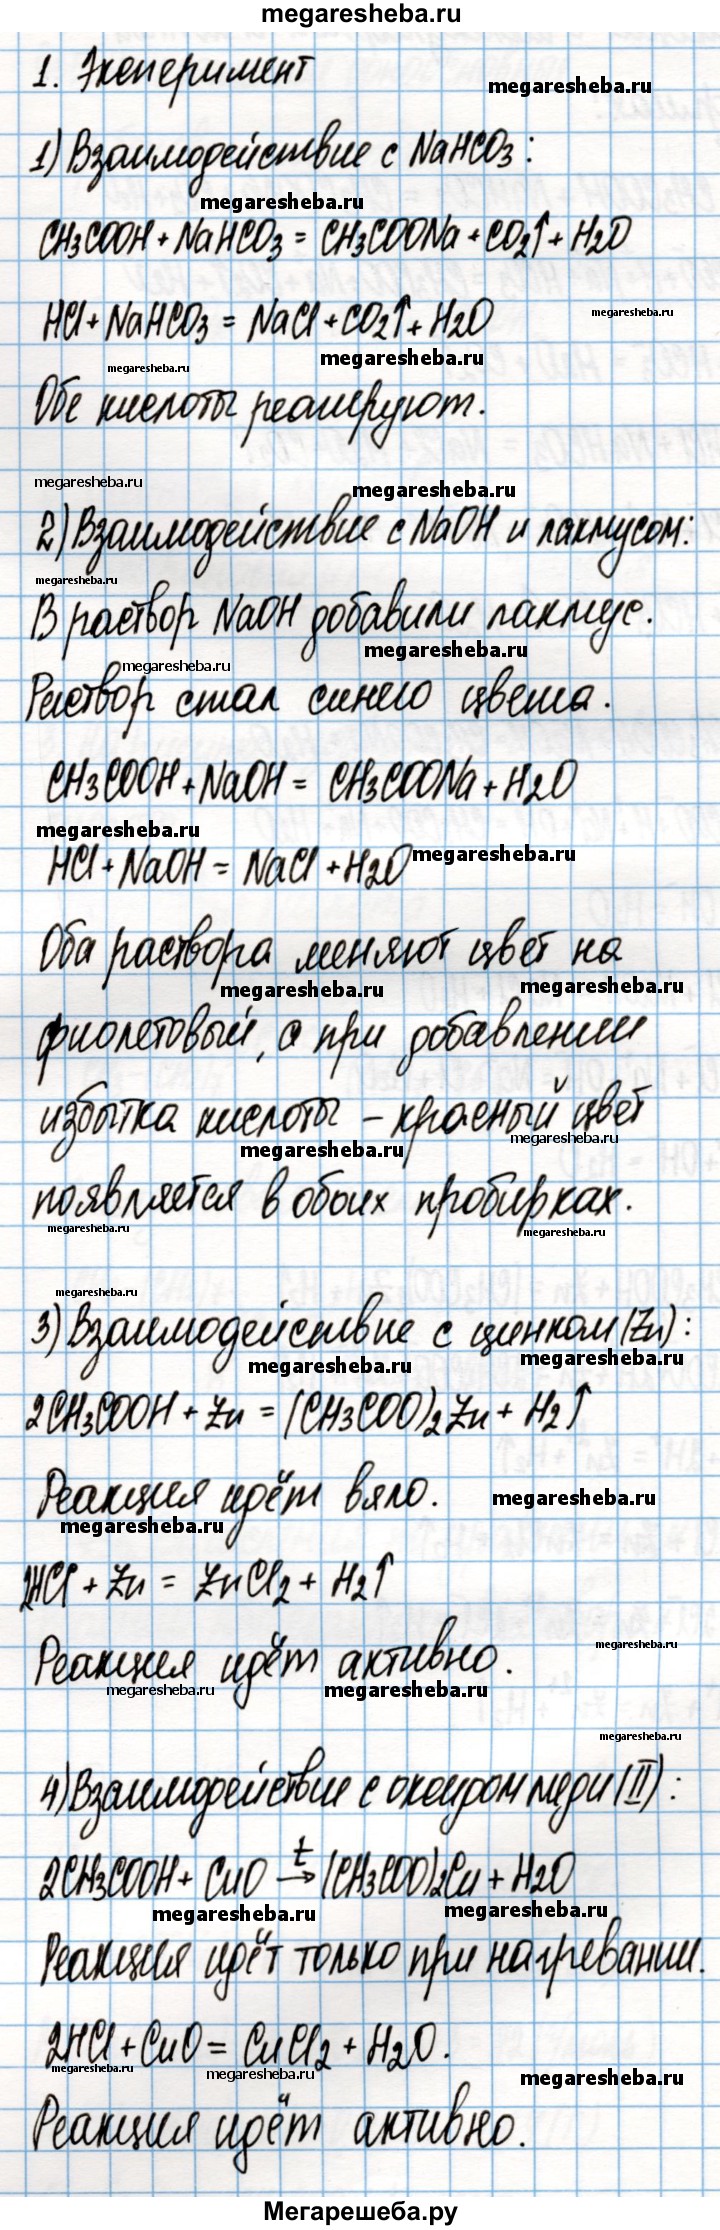 megaresheba.ru
1. Эксперимент
megaresheba.ru
1) Взаимодействие с NaHCO3:
megaresheba.ru
CH3COOH + NaHCO3 = CH3COONa + CO2↑ + H2O
megaresheba.ru
HCl + NaHCO3 = NaCl + CO2↑ + H2O
megaresheba.ru
megaresheba.ru
Обе кислоты реагируют.
megaresheba.ru
megaresheba.ru
2) Взаимодействие с NaOH и лакмусом:
megaresheba.ru
В раствор NaOH добавили лакмус.
megaresheba.ru
megaresheba.ru
Раствор стал синего цвета.
CH3COOH + NaOH = CH3COONa + H2O
megaresheba.ru
HCl + NaOH = NaCl + H2O
megaresheba.ru
Оба раствора меняют цвет на
megaresheba.ru
megaresheba.ru
фиолетовый, а при добавлении
избытка кислоты – красный цвет
megaresheba.ru
megaresheba.ru
появляется в обоих пробирках.
megaresheba.ru
megaresheba.ru
megaresheba.ru
3) Взаимодействие с цинком (Zn):
megaresheba.ru
megaresheba.ru
2CH3COOH + Zn = (CH3COO)2Zn + H2↑
Реакция идёт вяло.
megaresheba.ru
megaresheba.ru
2HCl + Zn = ZnCl2 + H2↑
megaresheba.ru
Реакция идёт активно.
megaresheba.ru
megaresheba.ru
megaresheba.ru
4) Взаимодействие с оксидом меди (II):
2CH3COOH + CuO t→ (CH3COO)2Cu + H2O
megaresheba.ru
megaresheba.ru
Реакция идёт только при нагревании.
2HCl + CuO = CuCl2 + H2O.
megaresheba.ru
megaresheba.ru
megaresheba.ru
Реакция идёт активно.
Мегарешеба.ру